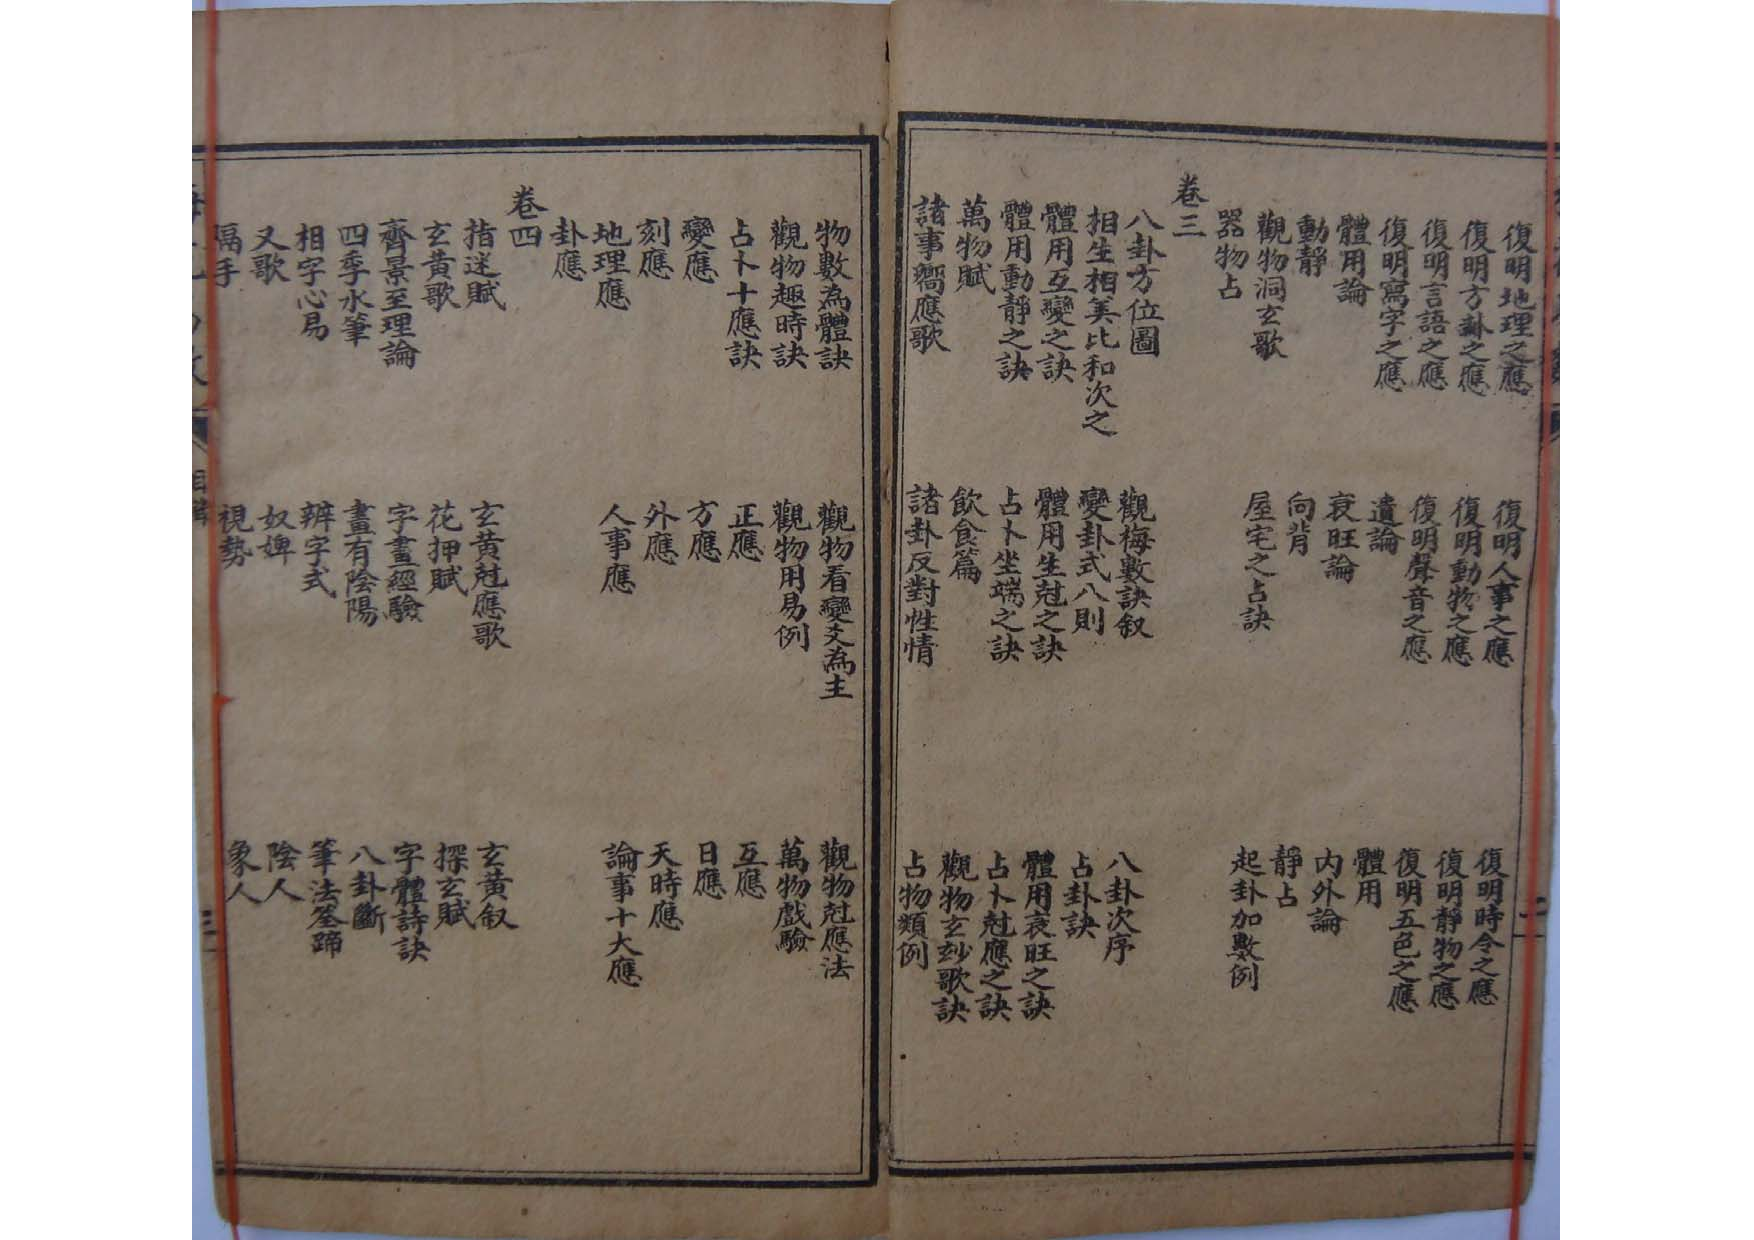 復明地理之應　復明人事之應　復明時令之應
復明方卦之應　復明動物之應　復明靜物之應
復明言語之應　復明聲音之應　復明五色之應
復明寫字之應　遺論　體用
體用論　衰旺論　内外論
動靜　向背　靜占
觀物洞玄歌　屋宅之占訣　起卦加數例
器物占
卷三
八卦方位圖　觀梅數訣叙　八卦次序
相生相美比和次之　變卦式八則　占卦訣
體用互變之訣　體用生尅之訣　體用衰旺之訣
體用動靜之訣　占卜坐端之訣　占卜尅應之訣
萬物賦　飲食篇　觀物玄妙歌訣
諸事響應歌　諸卦反對性情　占物類例
物數為體訣　觀物看變爻為主　觀物尅應法
觀物趣時訣　觀物用易例　萬物戲驗
占卜十應訣　正應　互應
變應　方應　日應
刻應　外應　天時應
地理應　人事應　論事十大應
卦應
卷四
指迷賦　玄黄尅應歌　玄黄叙
玄黄歌　花押賦　探玄賦
齊景至理論　字畫經驗　字體詩訣
四季水筆　畫有陰陽　八卦斷
相字心易　辨字式　筆法筌蹄
又歌　奴婢　陰人
隔手　視勢　象人